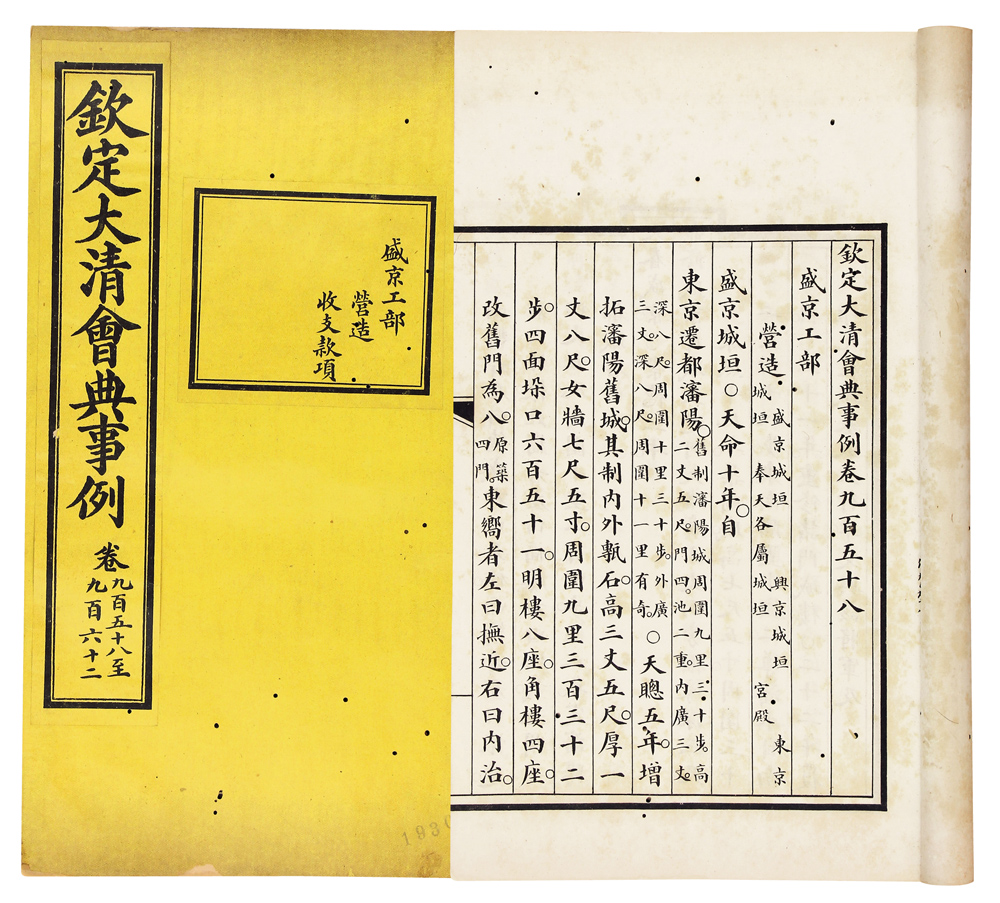 欽定大清會典事例
卷九百五十八至
九百六十二
盛京工部
營造
收支款項
欽定大清會典事例卷九百五十八
盛京工部
營造 盛京城垣 興京城垣 東京城垣 奉天各屬城垣 宮殿
盛京城垣○天命十年。自
東京遷都瀋陽。舊制瀋陽城周圍九里三十步。高二丈五尺。門四。池二重。內廣三丈。
深八尺。周圍十里三十步。外廣三丈。深八尺。周圍十一里有奇。○天聰五年。增
拓瀋陽舊城。其制內外甎石。高三丈五尺。厚一
丈八尺。女牆七尺五寸。周圍九里三百三十二
步。四面垛口六百五十一。明樓八座。角樓四座。
改舊門為八。原築四門。東嚮者左曰撫近。右曰內治。